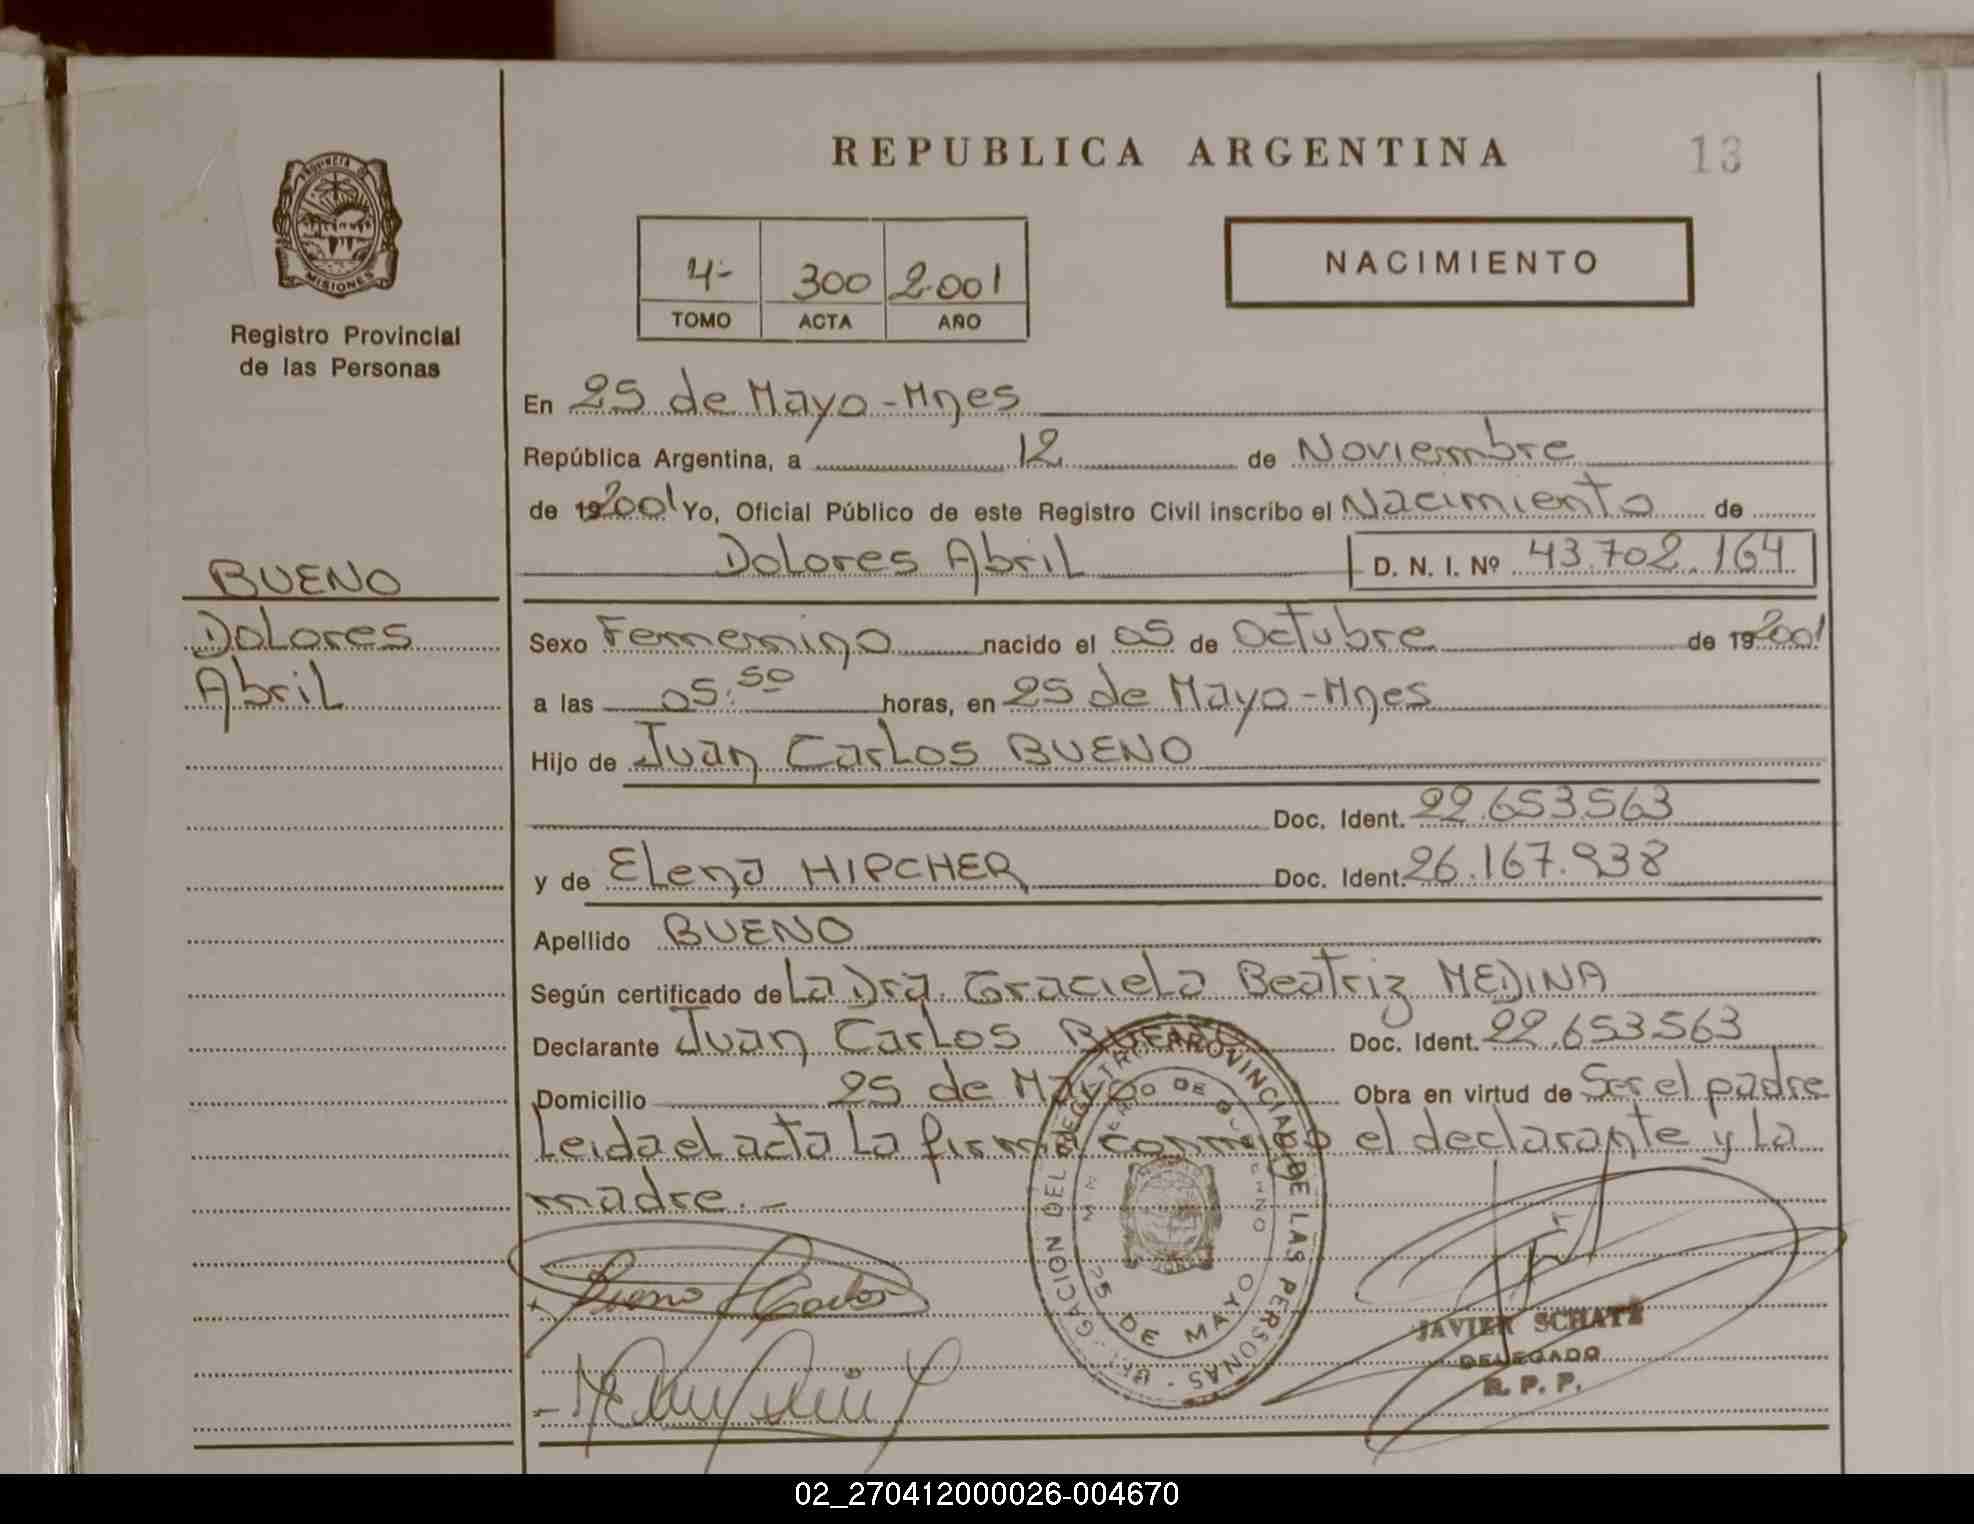 REPUBLICA ARGENTINA
13
PROVINCIA DE
MISIONES
Registro Provincial
de las Personas
4- 300 2.001
TOMO ACTA AÑO
NACIMIENTO
En 25 de Mayo-Mnes
República Argentina, a 12 de Noviembre
de 192001 Yo, Oficial Público de este Registro Civil inscribo el Nacimiento de
Dolores Abril D. N. I. Nº 43.702.164
BUENO
Dolores
Abril
Sexo Femenino nacido el 05 de Octubre de 192001
a las 05:50 horas, en 25 de Mayo-Mnes
Hijo de Juan Carlos BUENO
Doc. Ident. 22.653.563
y de Elena HIPCHER Doc. Ident. 26.167.938
Apellido BUENO
Según certificado de La Dra. Graciela Beatriz MEDINA
Declarante Juan Carlos BUENO Doc. Ident. 22.653.563
Domicilio 25 de Mayo Obra en virtud de Ser el padre
Leida el acta la firma conmigo el declarante y la
madre.-
DEL REGISTRO PROVINCIAL DE LAS PERSONAS
25 DE MAYO
Bueno J Carlos
JAVIER SCHATZ
DELEGADO
R. P. P.
02_270412000026-004670